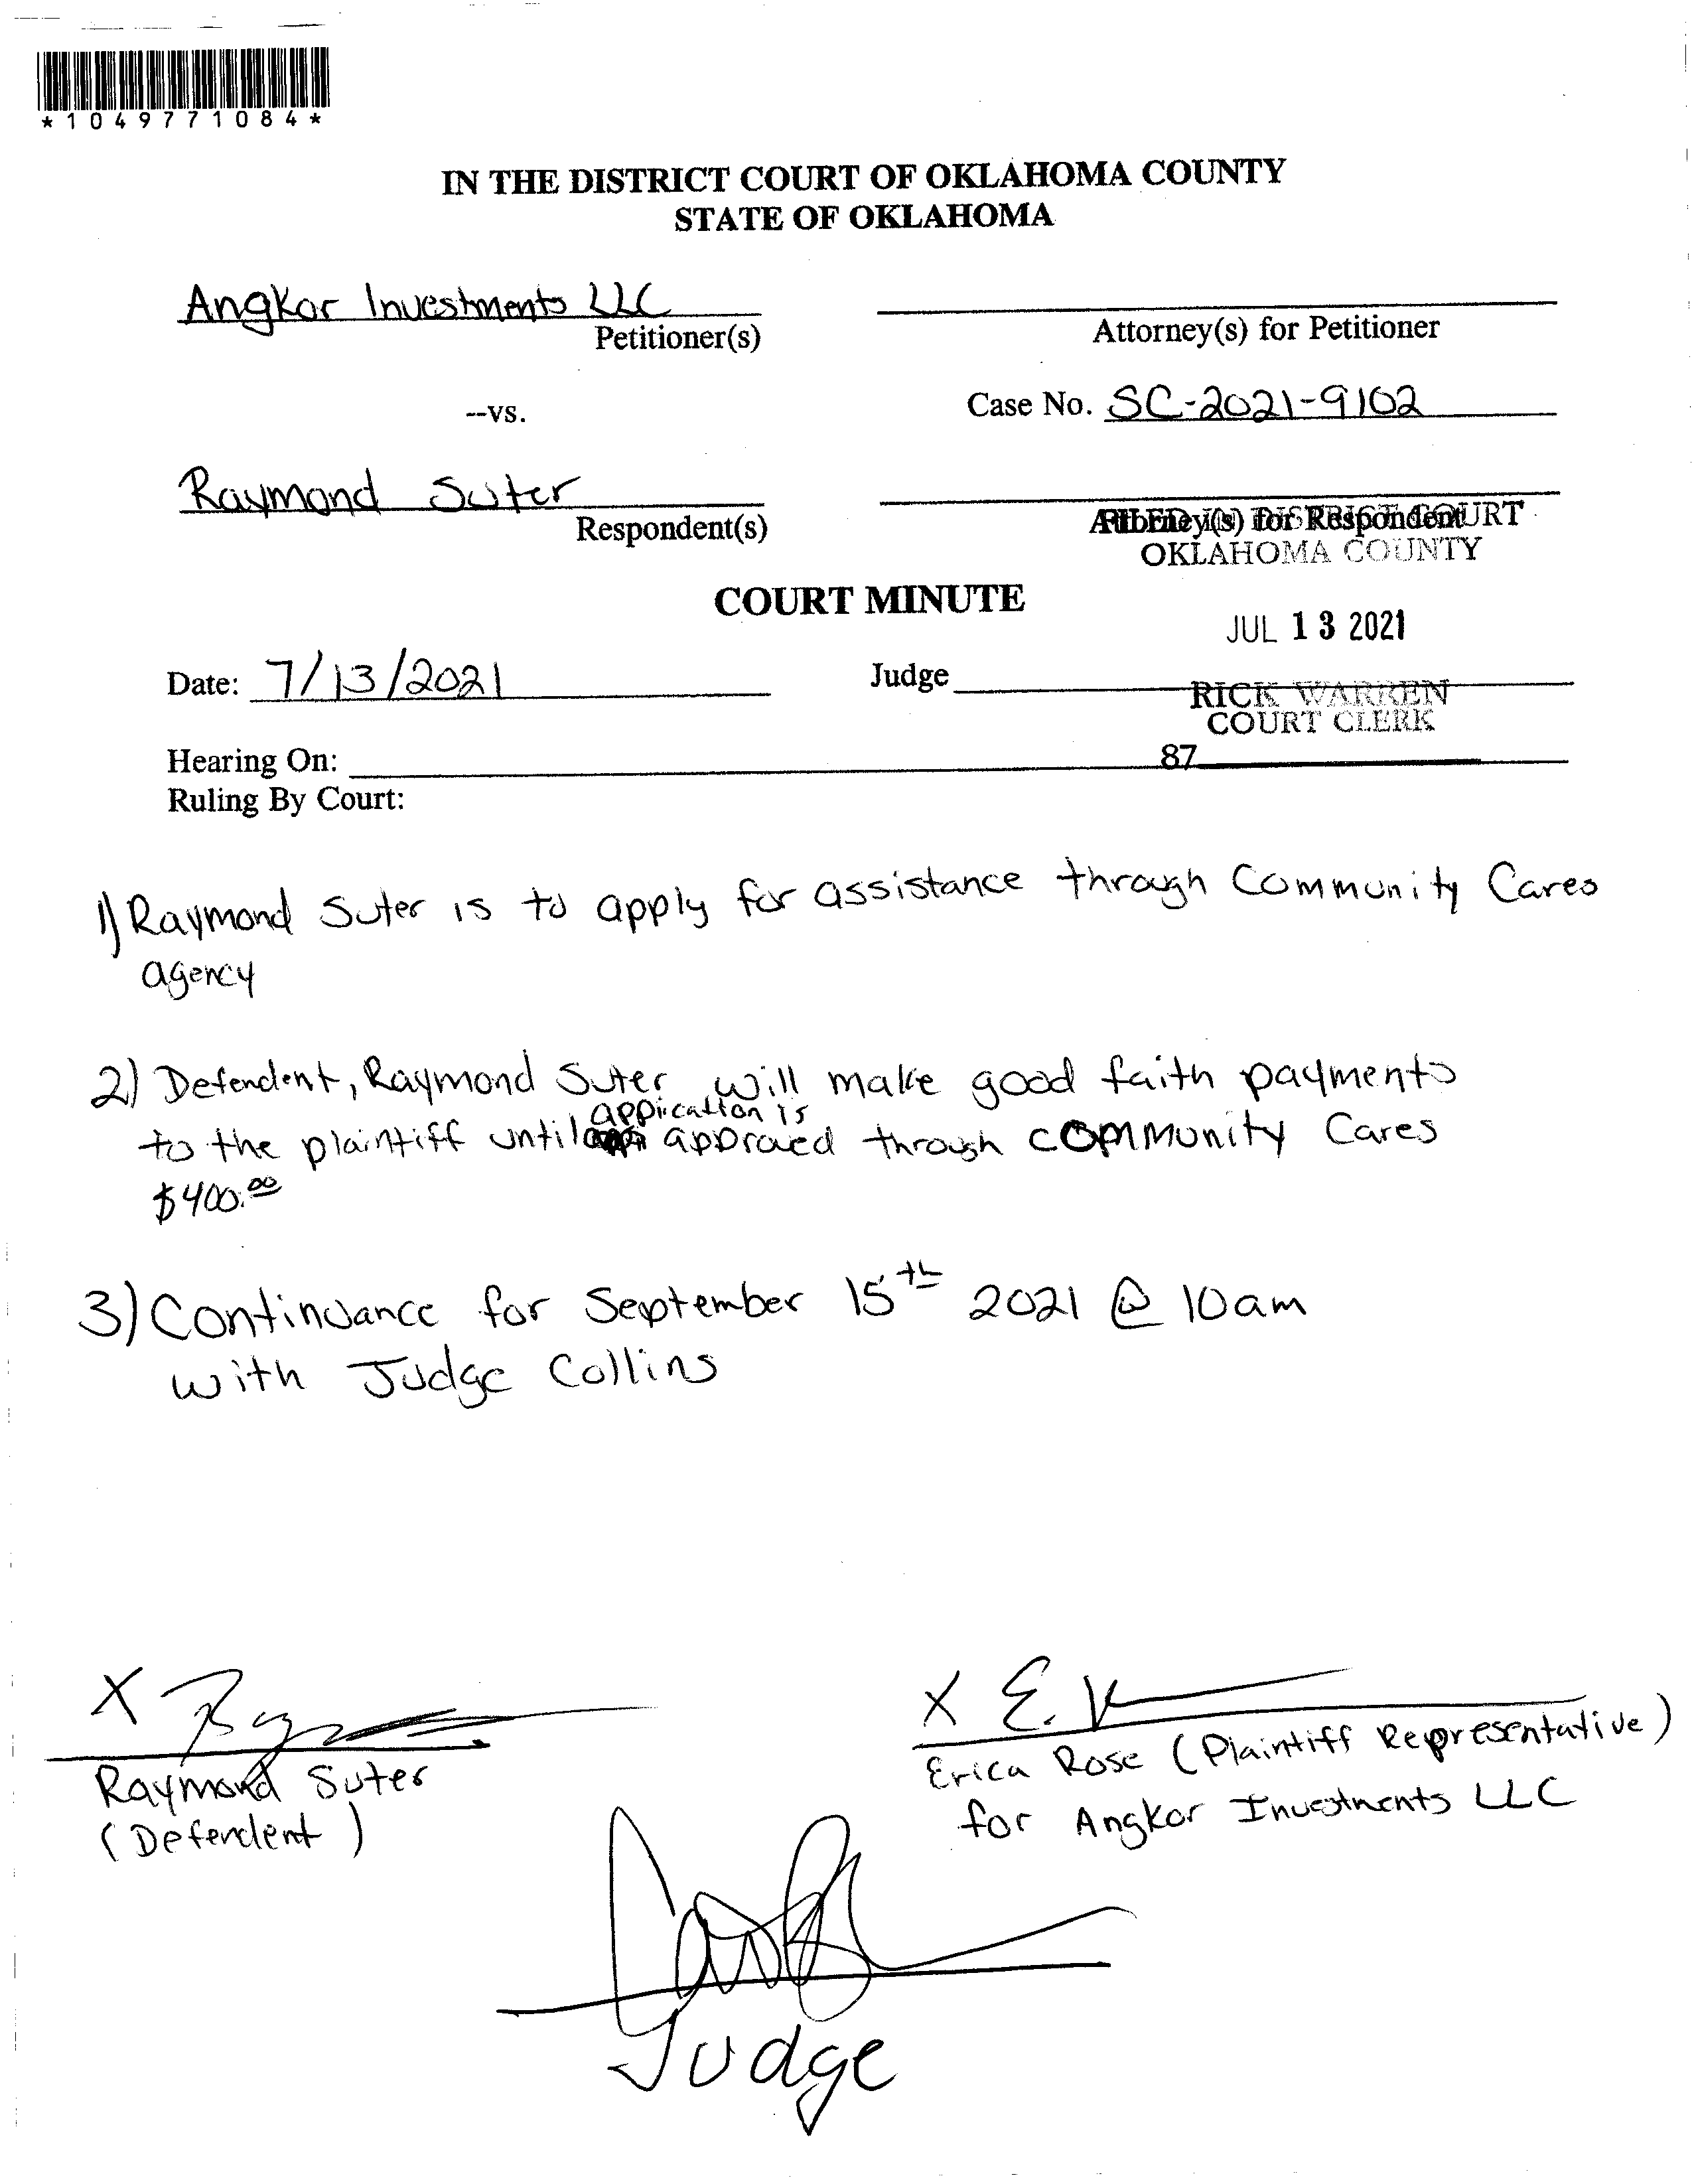 *1049771084*
IN THE DISTRICT COURT OF OKLAHOMA COUNTY
STATE OF OKLAHOMA
Angkor Investments LLC
Petitioner(s)
Attorney(s) for Petitioner
--vs.
Case No. SC-2021-9102
Raymond Suter
Respondent(s)
Attorney(s) for Respondent
FILED IN DISTRICT COURT
OKLAHOMA COUNTY
COURT MINUTE
JUL 13 2021
Date: 7/13/2021
Judge
RICK WARREN
COURT CLERK
Hearing On:
87
Ruling By Court:
1) Raymond Suter is to apply for assistance through Community Cares
agency
2) Defendent, Raymond Suter will make good faith payments
application is
to the plaintiff until approved through community Cares
$400.00
3) Continuance for September 15th 2021 @ 10am
with Judge Collins
X
X E.
Raymond Suter
(Defendent)
Erica Rose (Plaintiff Representative)
for Angkor Investments LLC
Judge